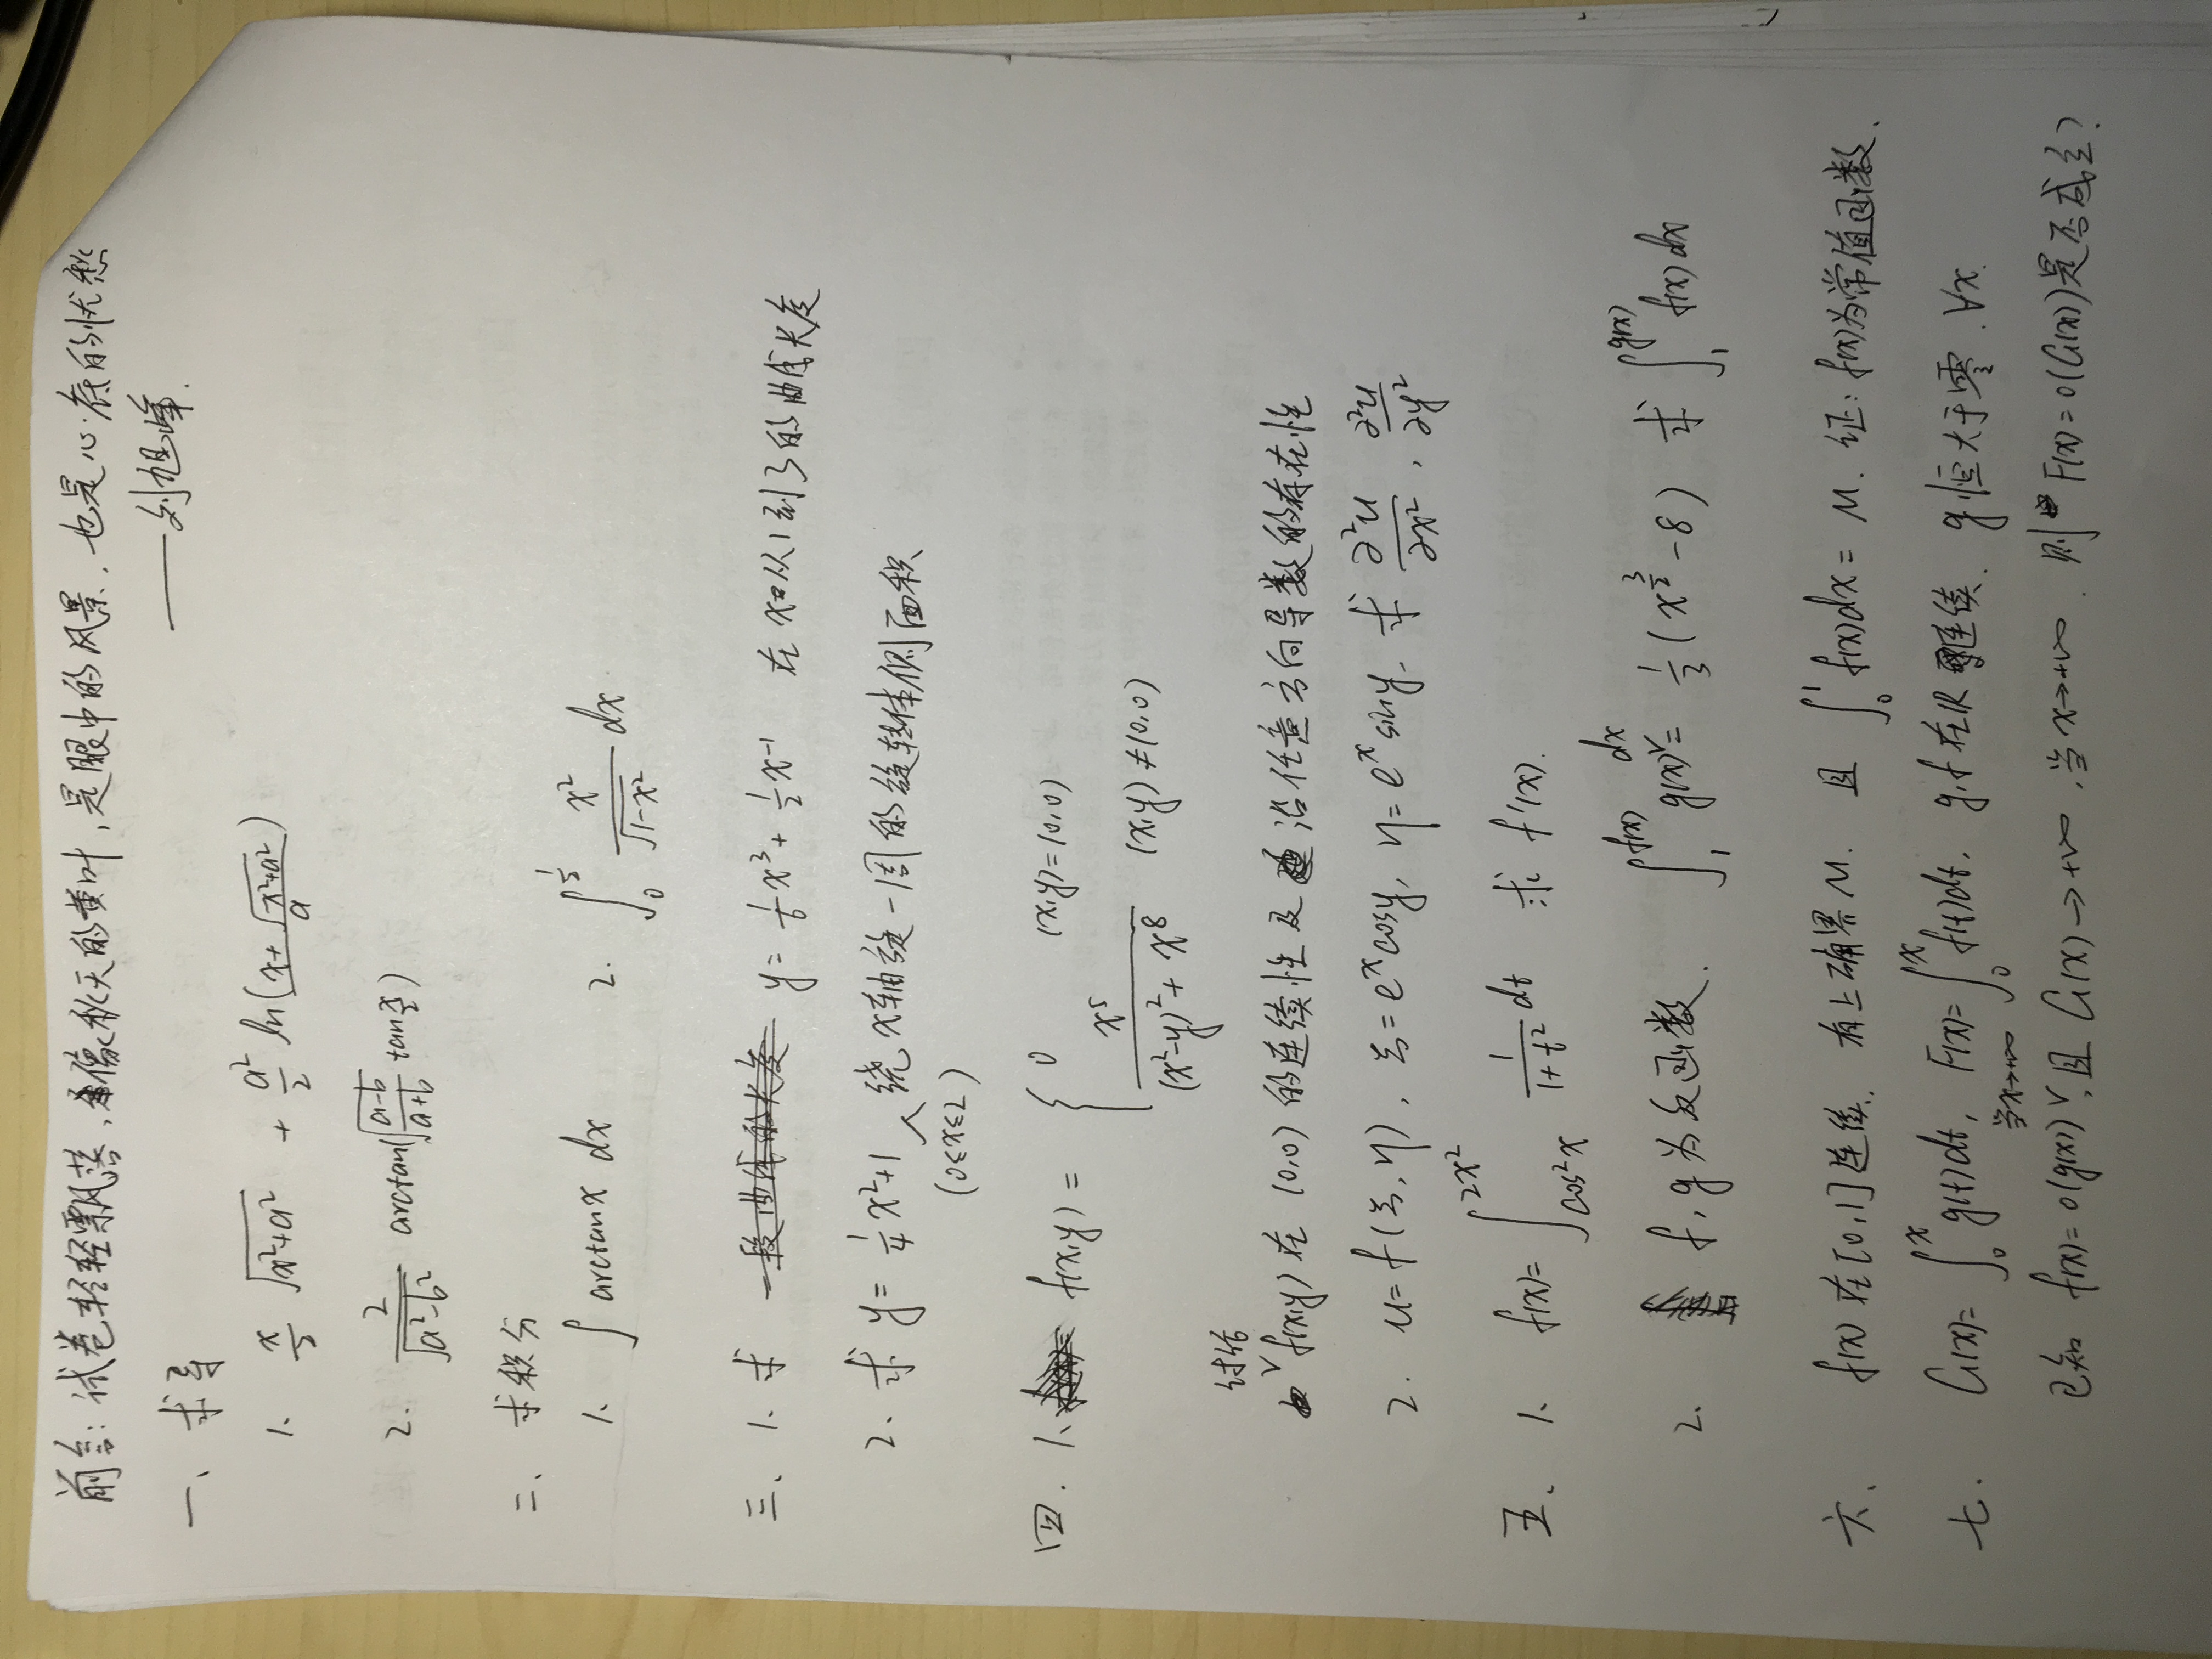 前言：试卷轻轻飘落，像秋天的黄叶，是眼中的风景，也是心底的忧愁
——刘旭峰.
一、求导
1、 x/2 √(x²+a²) + a²/2 ln((x+√(x²+a²))/a)
2. 2/√(a²-b²) arctan(√((a-b)/(a+b)) tan x/2)
二、求积分
1、 ∫ arctanx dx 2. ∫₀^(1/2) x²/√(1-x²) dx
三、1、求 y = 1/6 x³ + 1/2 x⁻¹ 在 x从1到3的曲线长度
2、求 y = 1/4 x²+1 (0≤x≤2) 绕x轴旋一周的旋转体侧面积
四. 1、 f(x,y) = { 0 (x,y)=(0,0)
x⁵/((x²-y)²+x⁸) (x,y)≠(0,0)
讨论f(x,y)在(0,0)的连续性及沿任意方向导数的存在性
2. u=f(ξ,η), ξ=eˣcosy, η=eˣsiny, 求 ∂²u/∂x², ∂²u/∂y²
五、1、 f(x)= ∫_(cos²x)^(2x²) 1/(1+t²) dt 求 f'(x).
2. f,g为反函数. ∫₁^(f(x)) g(x)dx = 1/3 (x^(3/2) - 8) 求 ∫₁^(g(x)) f(x)dx
六、f(x)在[0,1]连续. 有上确界M. 且 ∫₀¹ f(x)dx = M. 证: f(x)为常值函数.
七. G(x)= ∫₀ˣ g(t)dt, F(x)= ∫₀ˣ f(t)dt, g,f在R连续. g恒大于零. ∀x.
已知 f(x)=o(g(x)) 当x→+∞, 且 G(x)→+∞, 当x→+∞. 则 F(x)=o(G(x))是否成立?